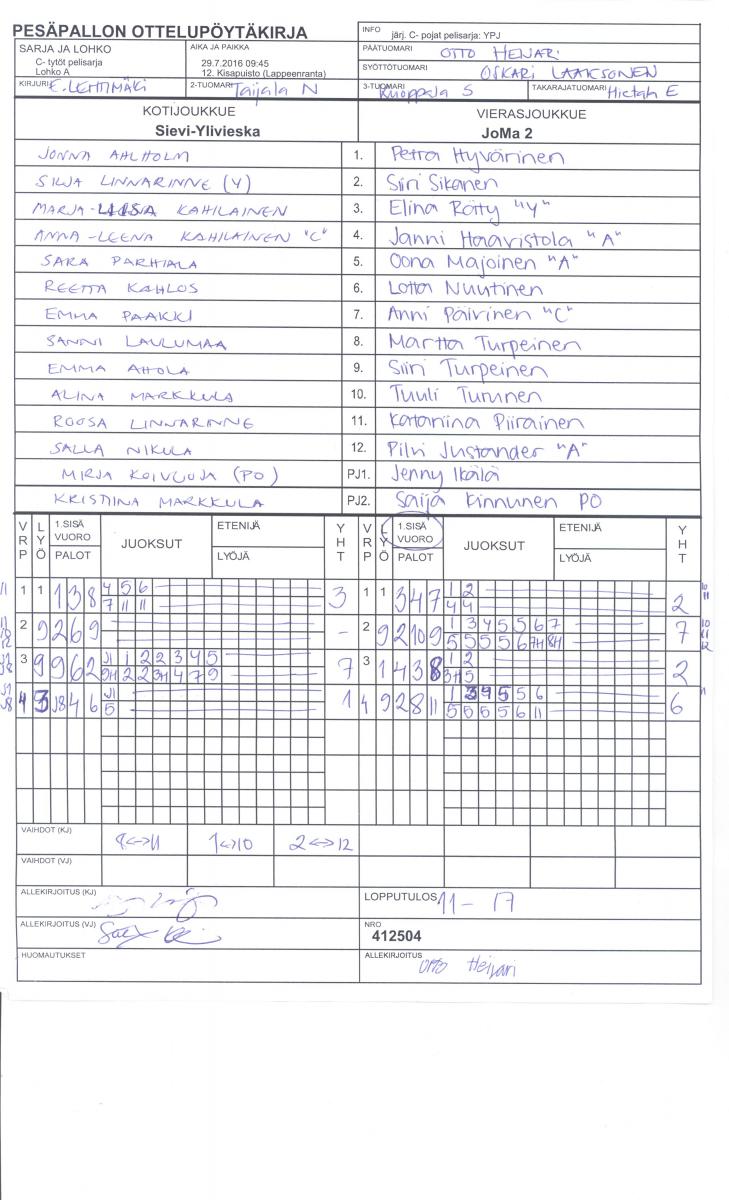 PESÄPALLON OTTELUPÖYTÄKIRJA
INFO järj. C- pojat pelisarja: YPJ
SARJA JA LOHKO
C- tytöt pelisarja
Lohko A
AIKA JA PAIKKA
29.7.2016 09:45
12. Kisapuisto (Lappeenranta)
PÄÄTUOMARI OTTO HEIJARI
SYÖTTÖTUOMARI OSKARI LAAKSONEN
KIRJURI E. LEHTIMÄKI
2-TUOMARI Taijala N
3-TUOMARI Kuoppala S
TAKARAJATUOMARI
KOTIJOUKKUE
Sievi-Ylivieska
VIERASJOUKKUE
JoMa 2
JONNA AHLHOLM 1. Petra Hyvärinen
SILJA LINNARINNE (Y) 2. Siiri Sikanen
MARJA-LIISA KAHILAINEN 3. Elina Rötty "Y"
ANNA-LEENA KAHILAINEN "C" 4. Janni Haavistola "A"
SARA PARHIALA 5. Oona Majoinen "A"
REETTA KAHLOS 6. Lotta Nuutinen
EMMA PAAKKI 7. Anni Päivinen "C"
SANNI LAULUMAA 8. Martta Turpeinen
EMMA AHOLA 9. Siiri Turpeinen
ALINA MARKKULA 10. Tuuli Turunen
ROOSA LINNARINNE 11. Katariina Piirainen
SALLA NIKULA 12. Pilvi Justander "A"
MIRJA KOIVUOJA (PO) PJ1. Jenny Ikälä
KRISTIINA MARKKULA PJ2. Saija Kinnunen PO
VRP LYÖ 1.SISÄ VUORO PALOT JUOKSUT ETENIJÄ LYÖJÄ YHT VRP LYÖ 1.SISÄ VUORO PALOT JUOKSUT ETENIJÄ LYÖJÄ YHT
1 1 1 3 8 4 5 6 3 1 1 3 4 7 1 2 2
7 11 11 4 4
2 9 2 6 9 - 2 9 2 10 9 1 3 4 5 5 6 7 7
5 5 5 5 6 7H 8H
3 9 9 6 2 J1 1 2 2 3 4 5 7 3 1 4 3 8 1 2 2
9H 2 2 3H 4 7 9 3H 5
4 3 J8 4 6 J1 1 4 9 2 8 11 1 3 4 5 5 6 6
5 5 5 5 5 6 11
VAIHDOT (KJ) 1<->10 2<->12
VAIHDOT (VJ)
ALLEKIRJOITUS (KJ)
LOPPUTULOS 11 - 17
ALLEKIRJOITUS (VJ)
NRO
412504
HUOMAUTUKSET
ALLEKIRJOITUS Otto Heijari